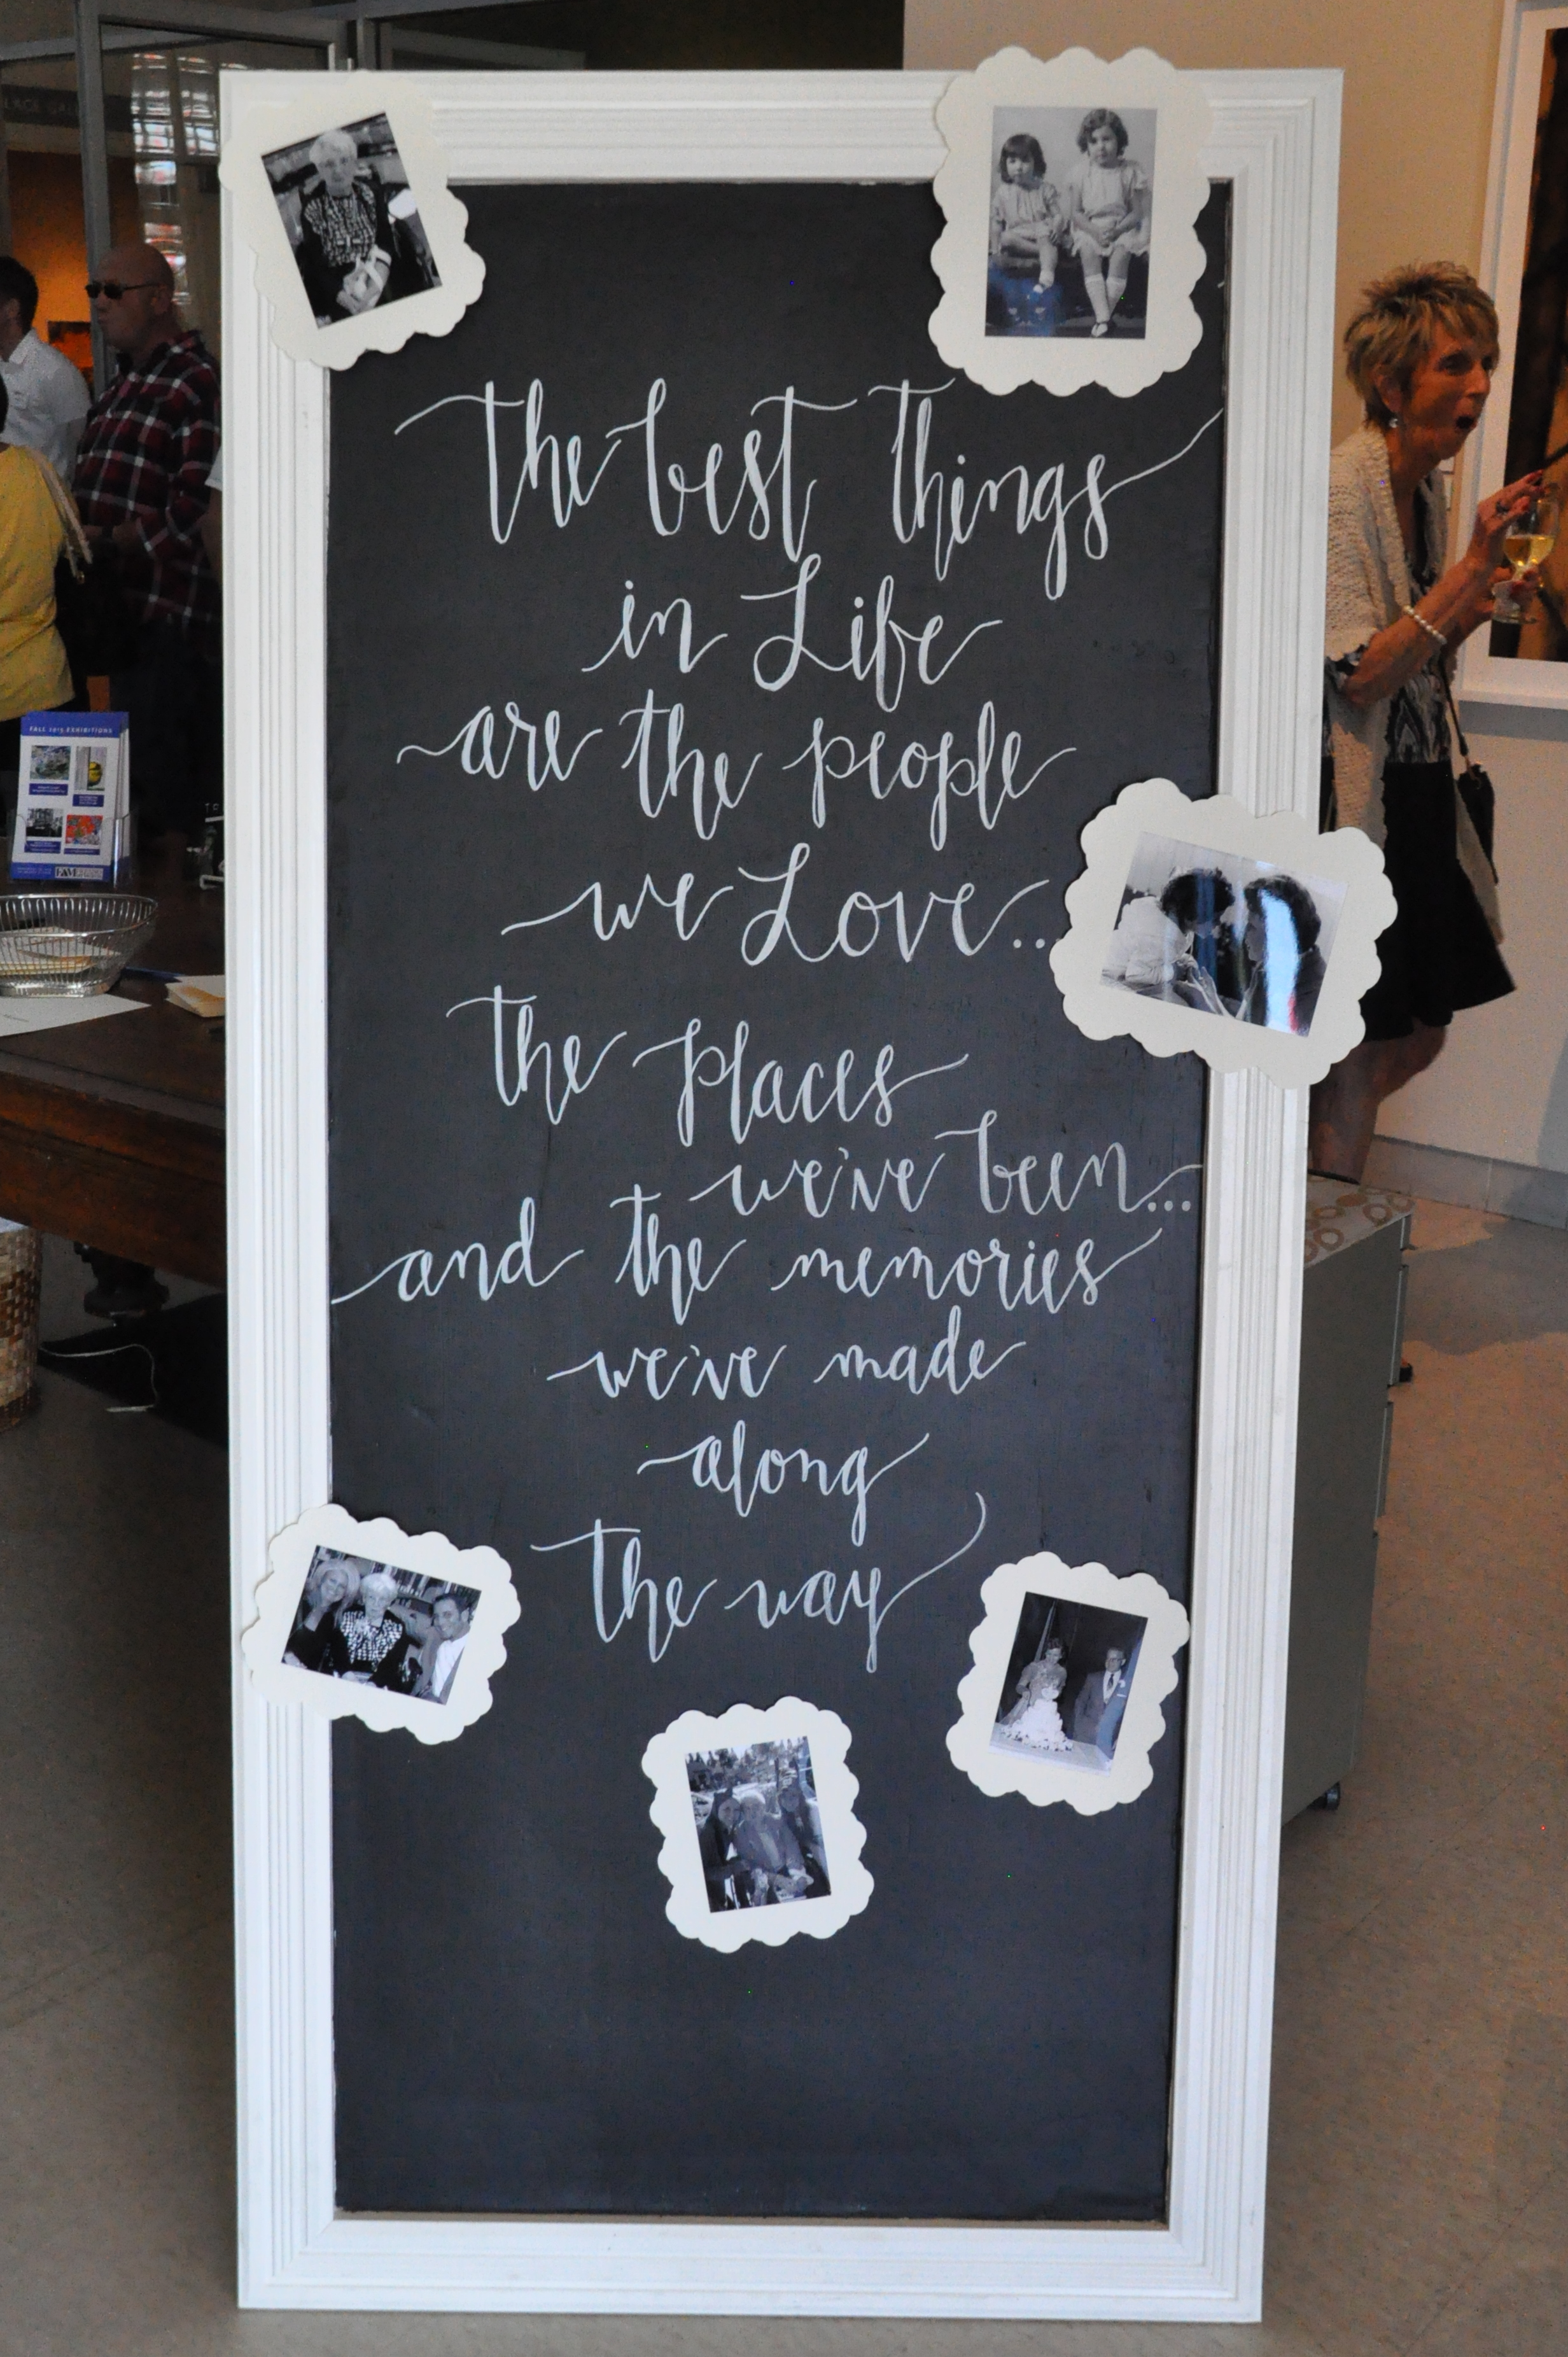 the best things
in Life
are the people
we Love...
the places
we've been...
and the memories
we've made
along
the way
FALL 2015 EXHIBITIONS